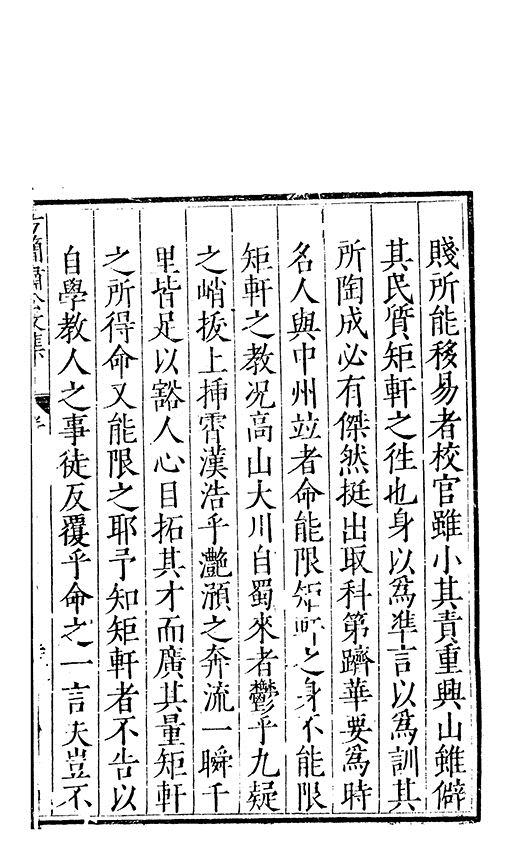 賤所能移易者校官雖小其責重興山雖僻
其民質矩軒之徃也身以爲準言以爲訓其
所陶成必有傑然挺出取科第躋華要爲時
名人與中州竝者命能限矩軒之身不能限
矩軒之教况高山大川自蜀來者鬱乎九疑
之峭拔上揷霄漢浩乎灔澦之奔流一瞬千
里皆足以豁人心目拓其才而廣其量矩軒
之所得命又能限之耶予知矩軒者不告以
自學教人之事徒反覆乎命之一言夫豈不
方簡肅公文集